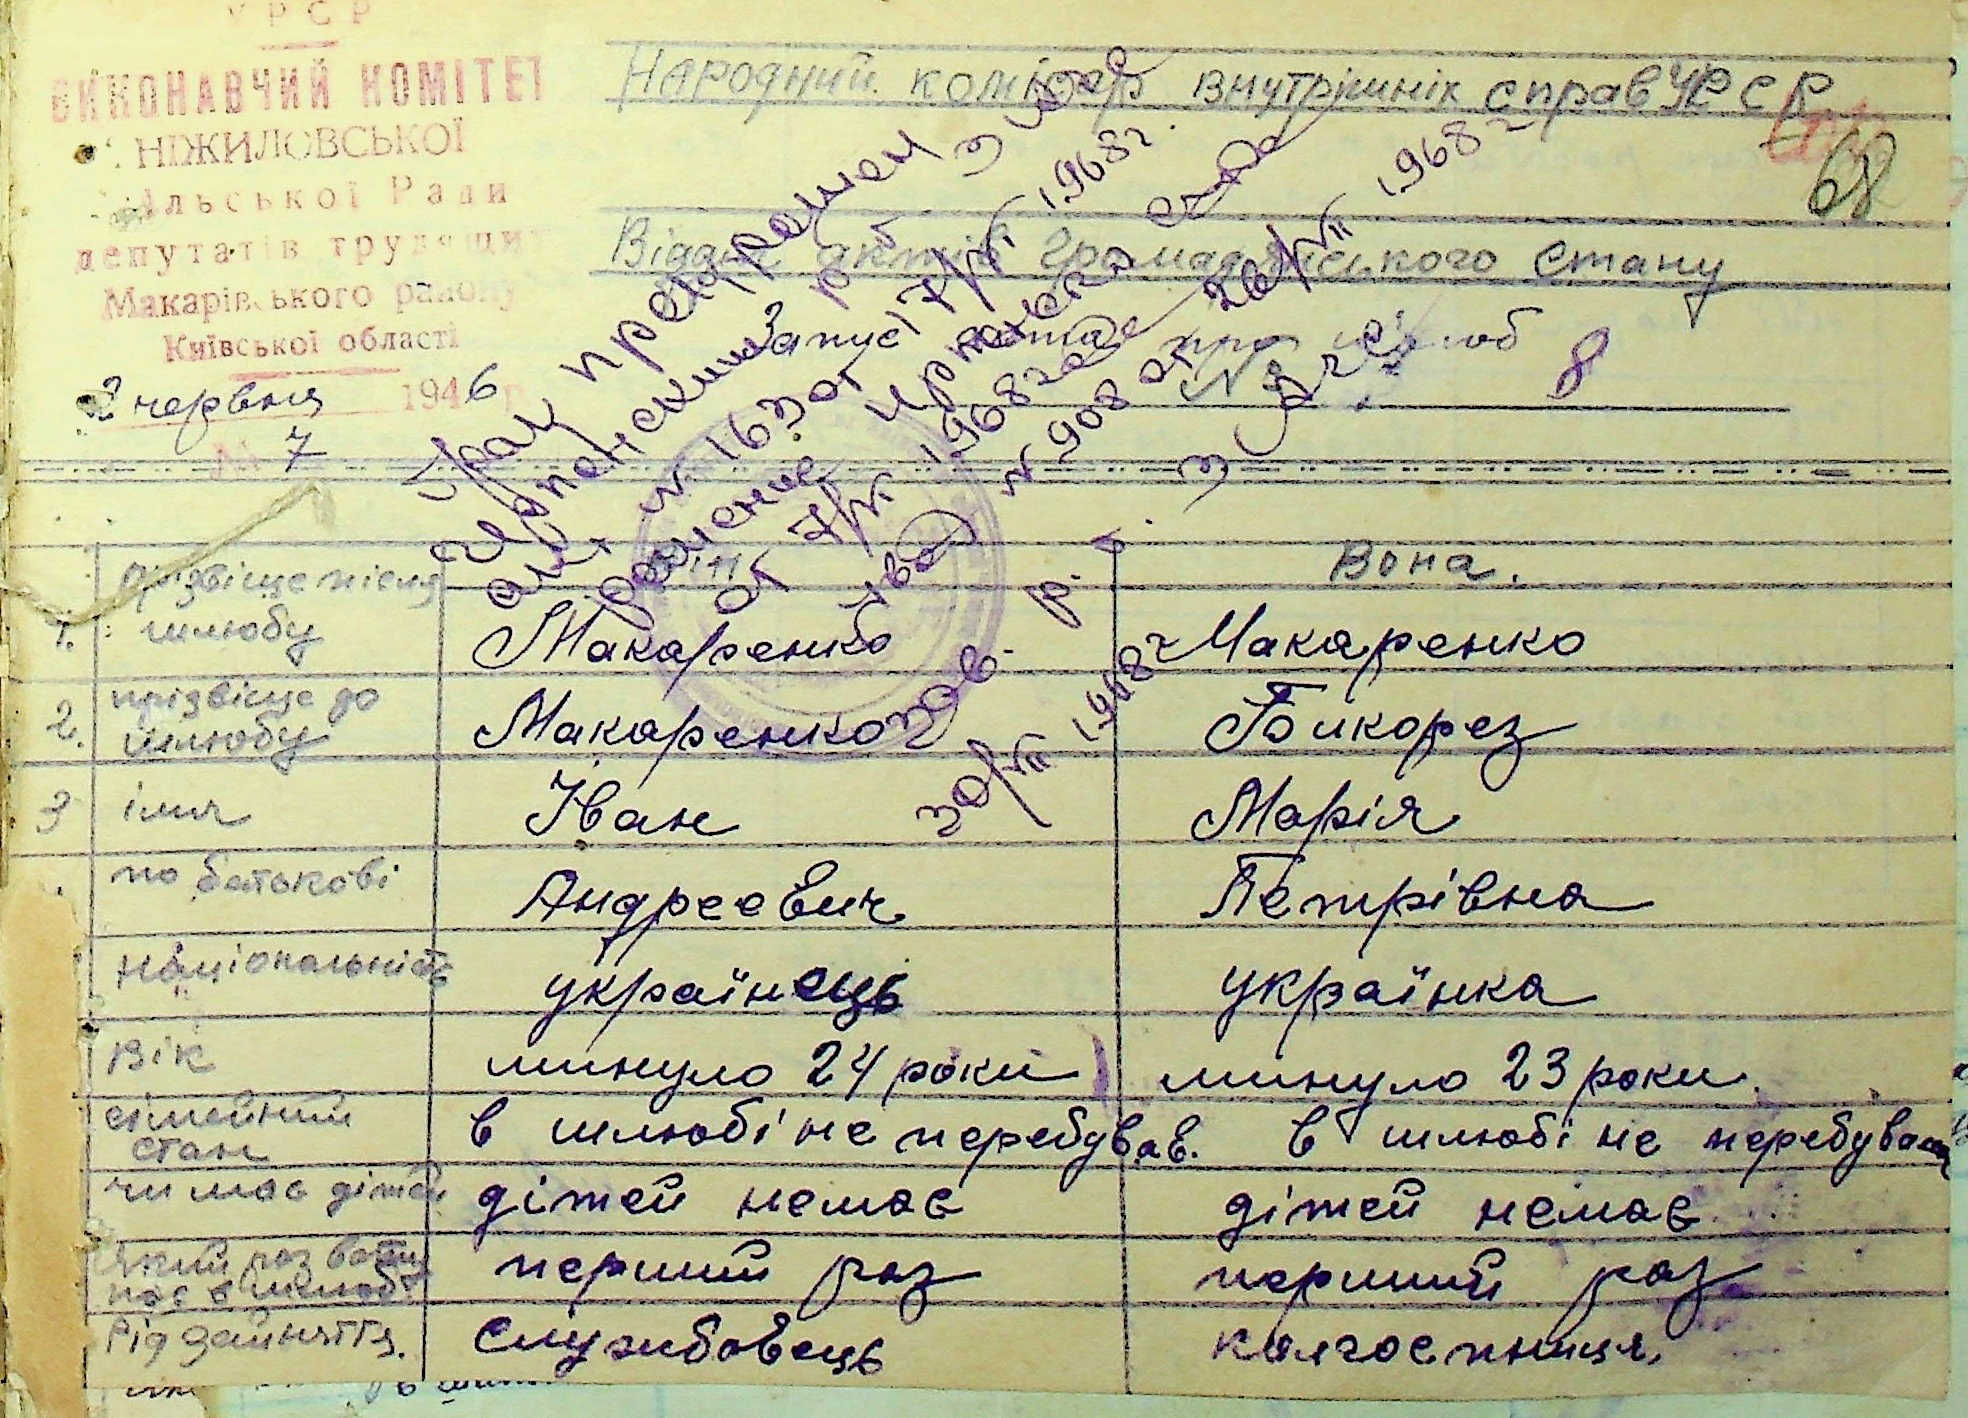 УРСР
ВИКОНАВЧИЙ КОМІТЕТ
НІЖИЛОВСЬКОЇ
сільської Ради
депутатів трудящих
Макарівського району
Київської області
2 червня 1946 р
№ 7
Народний комісар внутрішніх справ УРСР
68
Відділ актів громадянського стану
Запис акта про шлюб
№ 8
Брак
№ 163 от 7/VI 1968 г.
от 7/VI 1968 г.
№ 908 от 26/VII 1968 г
30/VII 1968 г
Він Вона.
1. прізвіще після шлюбу Макаренко Макаренко
2. прізвіще до шлюбу Макаренко
3 імя Іван Марія
по батькові Андреевич Петрівна
національність українець українка
вік минуло 24 роки минуло 23 роки.
сімейний стан в шлюбі не перебував. в шлюбі не перебувала
чи має дітей дітей немає дітей немає
який раз перший раз перший раз
Рід заняття. службовець колгоспниця.